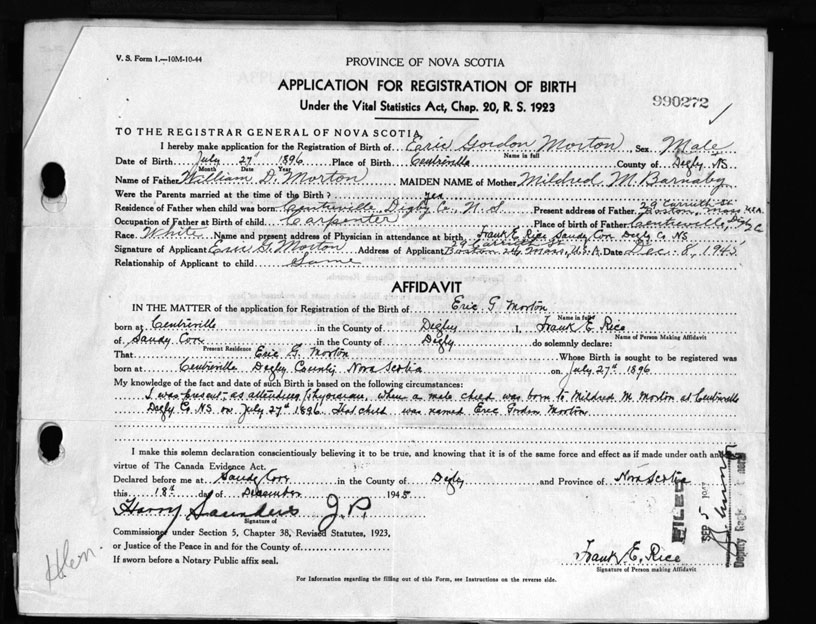 V. S. Form 1.—10M-10-44
PROVINCE OF NOVA SCOTIA
APPLICATION FOR REGISTRATION OF BIRTH
Under the Vital Statistics Act, Chap. 20, R. S. 1923
990272
TO THE REGISTRAR GENERAL OF NOVA SCOTIA
I hereby make application for the Registration of Birth of Eric Gordon Morton, Sex Male
Name in full
Date of Birth July 27th 1896 Place of Birth Centreville County of Digby NS
Month Date Year
Name of Father William D. Morton MAIDEN NAME of Mother Mildred M. Barnaby
Were the Parents married at the time of Birth? yes
29 Carruth St
Residence of Father when child was born Centreville, Digby Co., N.S. Present address of Father Boston, Mass. U.S.A.
Occupation of Father at Birth of child Carpenter Place of birth of Father Centreville, Dig Co
Race White Name and present address of Physician in attendance at birth Frank E. Rice Sandy Cove Digby Co NS
29 Carruth St
Signature of Applicant Eric G. Morton Address of Applicant Boston Mass., U.S.A. Date Dec. 8, 1945
Relationship of Applicant to child Same
AFFIDAVIT
IN THE MATTER of the application for Registration of the Birth of Eric G Morton
Name in full
born at Centreville in the County of Digby I, Frank E. Rice
Name of Person Making Affidavit
of Sandy Cove in the County of Digby do solemnly declare:
Present Residence
That Eric G. Morton Whose Birth is sought to be registered was
born at Centreville Digby County Nova Scotia on July 27th 1896
My knowledge of the fact and date of such Birth is based on the following circumstances:
I was present, as attending physician, when a male child was born to Mildred M. Morton at Centreville
Digby Co NS on July 27th 1896. That child was named Eric Gordon Morton
I make this solemn declaration conscientiously believing it to be true, and knowing that it is of the same force and effect as if made under oath and
virtue of The Canada Evidence Act.
Declared before me at Sandy Cove in the County of Digby and Province of Nova Scotia
this 18th day of December 1945
Harry Saunders J.P.
Signature of
Commissioner under Section 5, Chapter 38, Revised Statutes, 1923,
or Justice of the Peace in and for the County of
If sworn before a Notary Public affix seal.
Frank E. Rice
Signature of Person making Affidavit
For Information regarding the filling out of this Form, see Instructions on the reverse side.
FILED
SEP 5
Deputy